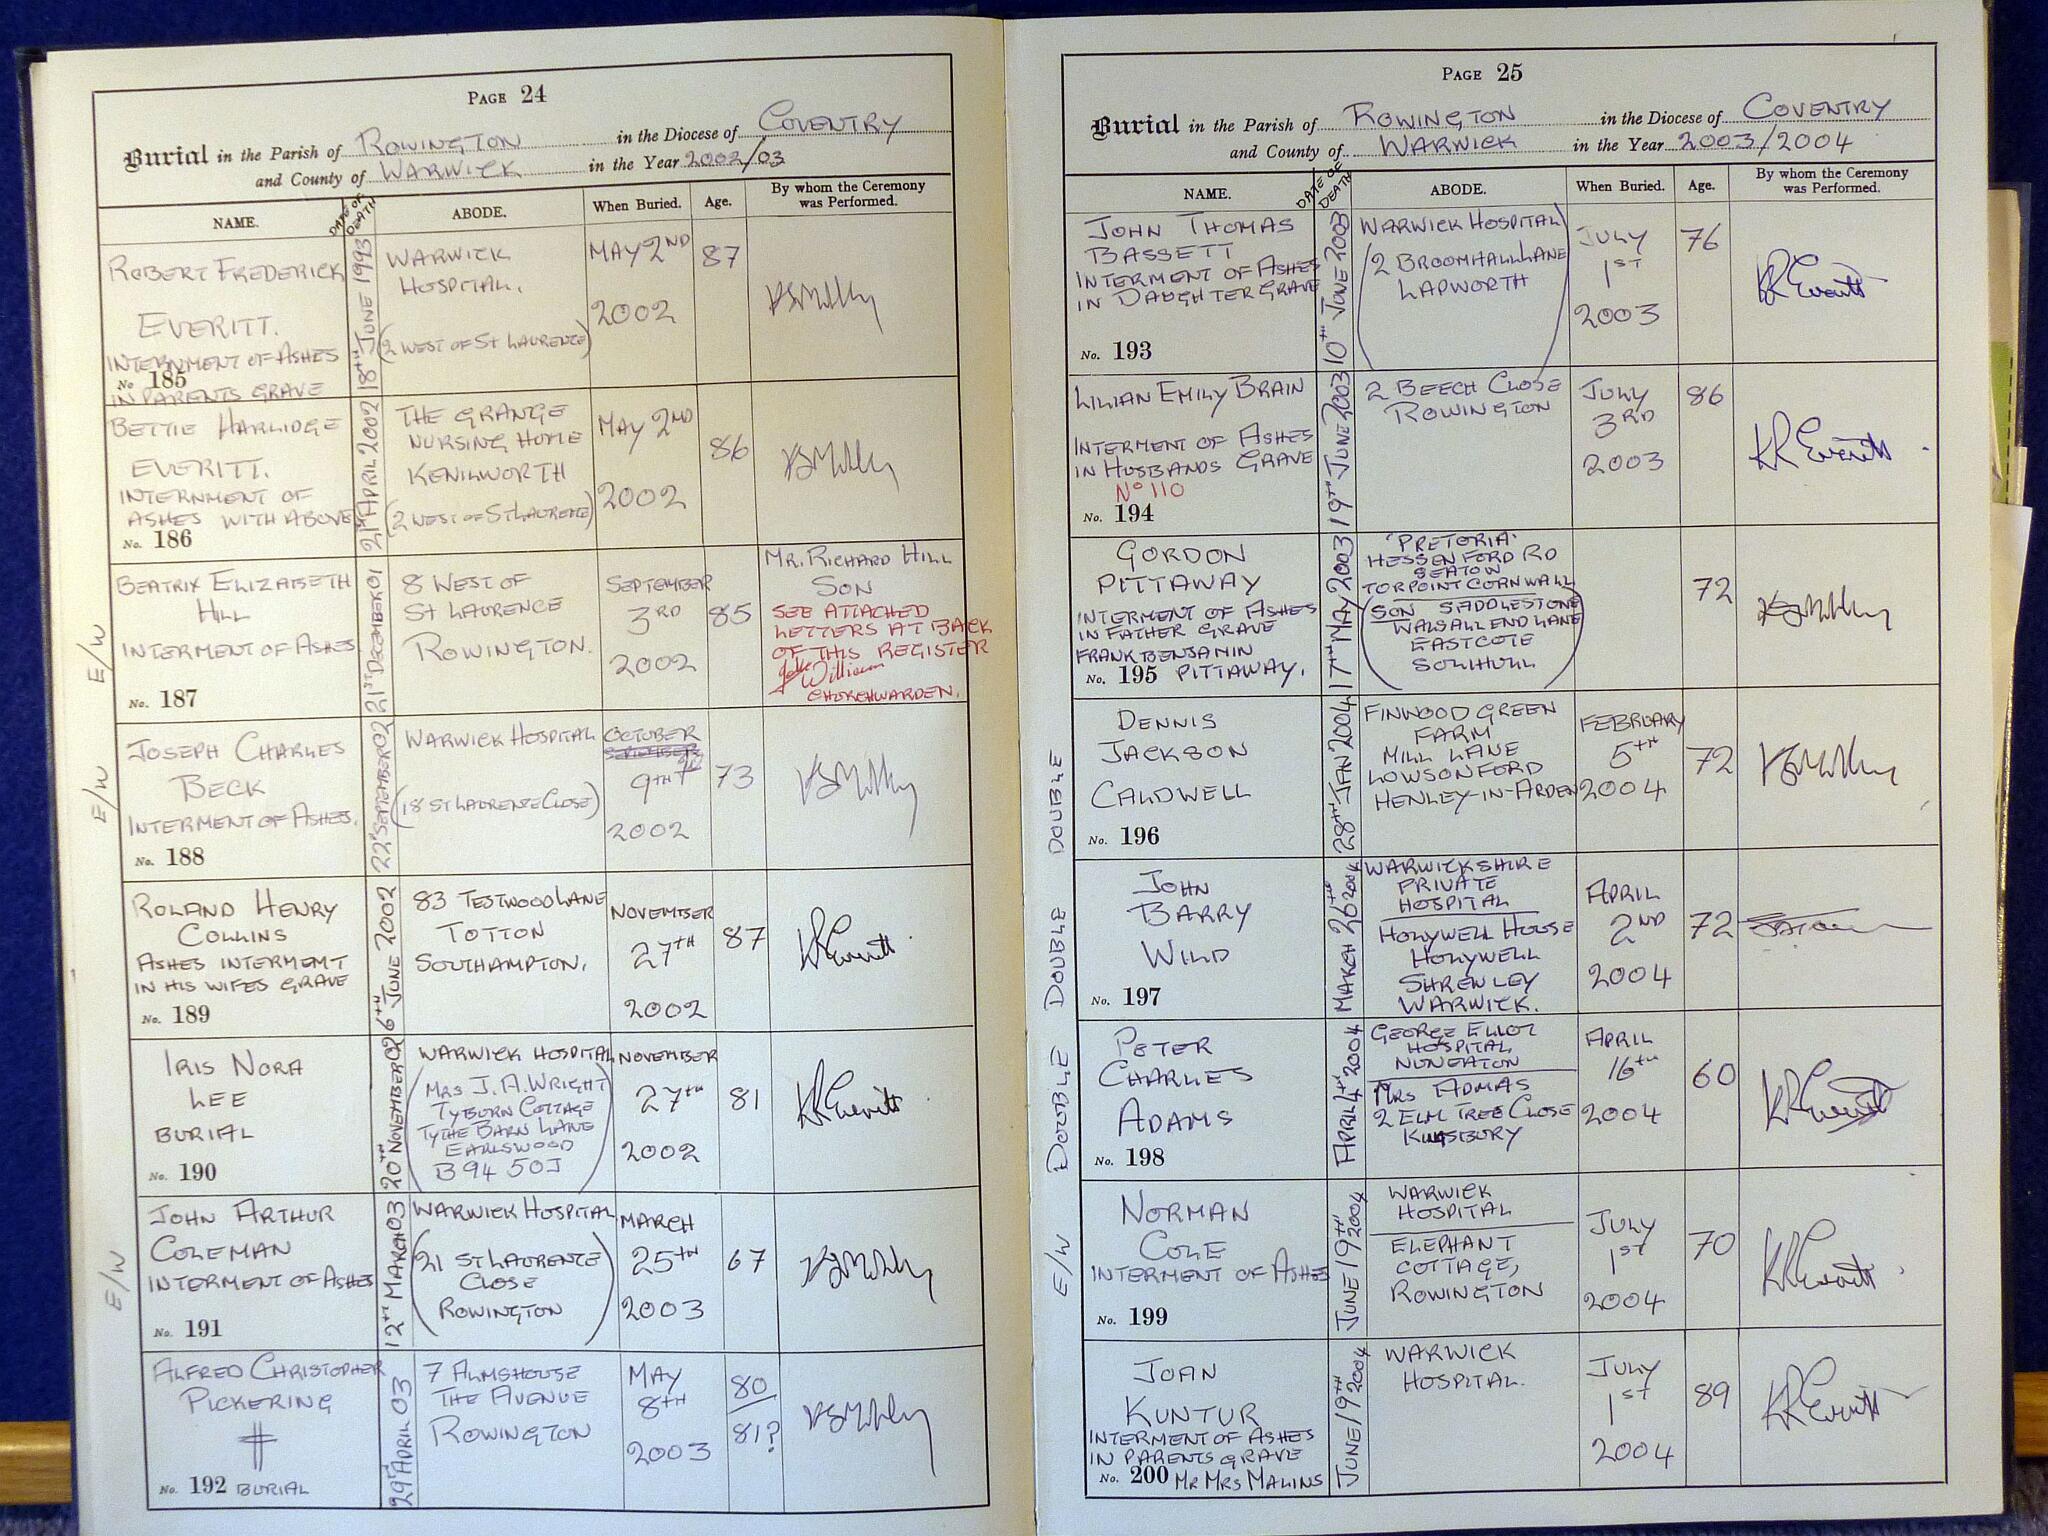 PAGE 24
Burial in the Parish of ROWINGTON in the Diocese of COVENTRY
and County of WARWICK in the Year 2002/03
NAME. DATE OF DEATH ABODE. When Buried. Age. By whom the Ceremony was Performed.
ROBERT FREDERICK
EVERITT.
INTERNMENT OF ASHES
No 185
IN PARENTS GRAVE
18TH JUNE 1993
WARWICK
HOSPITAL.
(2 WEST OF ST LAURENCE)
MAY 2ND
2002
87
BETTIE HARLIDGE
EVERITT.
INTERNMENT OF
ASHES WITH ABOVE
No. 186
21ST APRIL 2002
THE GRANGE
NURSING HOME
KENILWORTH
(2 WEST OF ST LAURENCE)
MAY 2ND
2002
86
E/W
BEATRIX ELIZABETH
HILL
INTERMENT OF ASHES
No. 187
21ST DECEMBER 01
8 WEST OF
ST LAURENCE
ROWINGTON.
SEPTEMBER
3RD
2002
85
MR. RICHARD HILL
SON
SEE ATTACHED
LETTERS AT BACK
OF THIS REGISTER
William
CHURCHWARDEN.
E/W
JOSEPH CHARLES
BECK
INTERMENT OF ASHES.
No. 188
22ND SEPTEMBER 02
WARWICK HOSPITAL
(18 ST LAURENCE CLOSE)
OCTOBER
SEPTEMBER
9TH
2002
73
ROLAND HENRY
COLLINS
ASHES INTERMEMT
IN HIS WIFES GRAVE
No. 189
6TH JUNE 2002
83 TESTWOOD LANE
TOTTON
SOUTHAMPTON.
NOVEMBER
27TH
2002
87
KR Everitt
IRIS NORA
LEE
BURIAL
No. 190
20TH NOVEMBER 02
WARWICK HOSPITAL
(MRS J. A. WRIGHT
TYBURN COTTAGE
TYTHE BARN LANE
EARLSWOOD
B94 5OJ)
NOVEMBER
27TH
2002
81
KR Everitt
E/W
JOHN ARTHUR
COLEMAN
INTERMENT OF ASHES
No. 191
12TH MARCH 03
WARWICK HOSPITAL
(21 ST LAURENCE
CLOSE
ROWINGTON)
MARCH
25TH
2003
67
ALFRED CHRISTOPHER
PICKERING
No. 192 BURIAL
29TH APRIL 03
7 ALMSHOUSE
THE AVENUE
ROWINGTON
MAY
8TH
2003
80
81?
PAGE 25
Burial in the Parish of ROWINGTON in the Diocese of COVENTRY
and County of WARWICK in the Year 2003/2004
NAME. DATE OF DEATH ABODE. When Buried. Age. By whom the Ceremony was Performed.
JOHN THOMAS
BASSETT
INTERMENT OF ASHES
IN DAUGHTER GRAVE
No. 193
10TH JUNE 2003
WARWICK HOSPITAL
(2 BROOMHALL LANE
LAPWORTH)
JULY
1ST
2003
76
KR Everitt
LILIAN EMILY BRAIN
INTERMENT OF ASHES
IN HUSBANDS GRAVE
No 110
No. 194
19TH JUNE 2003
2 BEECH CLOSE
ROWINGTON
JULY
3RD
2003
86
KR Everitt
GORDON
PITTAWAY
INTERMENT OF ASHES
IN FATHER GRAVE
FRANK BENJAMIN
No. 195 PITTAWAY.
17TH MAY 2003
'PRETORIA'
HESSENFORD RD
SEATON
TORPOINT CORNWALL
(SON SADDLESTONE
WALSALL END LANE
EASTCOTE
SOLIHULL)
72
DOUBLE
DENNIS
JACKSON
CALDWELL
No. 196
28TH JAN 2004
FINWOOD GREEN
FARM
MILL LANE
LOWSONFORD
HENLEY-IN-ARDEN
FEBRUARY
5TH
2004
72
DOUBLE
JOHN
BARRY
WILD
No. 197
MARCH 26TH 2004
WARWICKSHIRE
PRIVATE
HOSPITAL
HOLYWELL HOUSE
HOLYWELL
SHREWLEY
WARWICK.
APRIL
2ND
2004
72
DOUBLE
PETER
CHARLES
ADAMS
No. 198
APRIL 4TH 2004
GEORGE ELLOT
HOSPITAL
NUNEATON
MRS ADMAS
2 ELM TREE CLOSE
KINGSBURY
APRIL
16TH
2004
60
KR Everitt
E/W
NORMAN
COLE
INTERMENT OF ASHES
No. 199
JUNE 19TH 2004
WARWICK
HOSPITAL
ELEPHANT
COTTAGE,
ROWINGTON
JULY
1ST
2004
70
KR Everitt
JOAN
KUNTUR
INTERMENT OF ASHES
IN PARENTS GRAVE
No. 200 MR MRS MALINS
JUNE 19TH 2004
WARWICK
HOSPITAL.
JULY
1ST
2004
89
KR Everitt